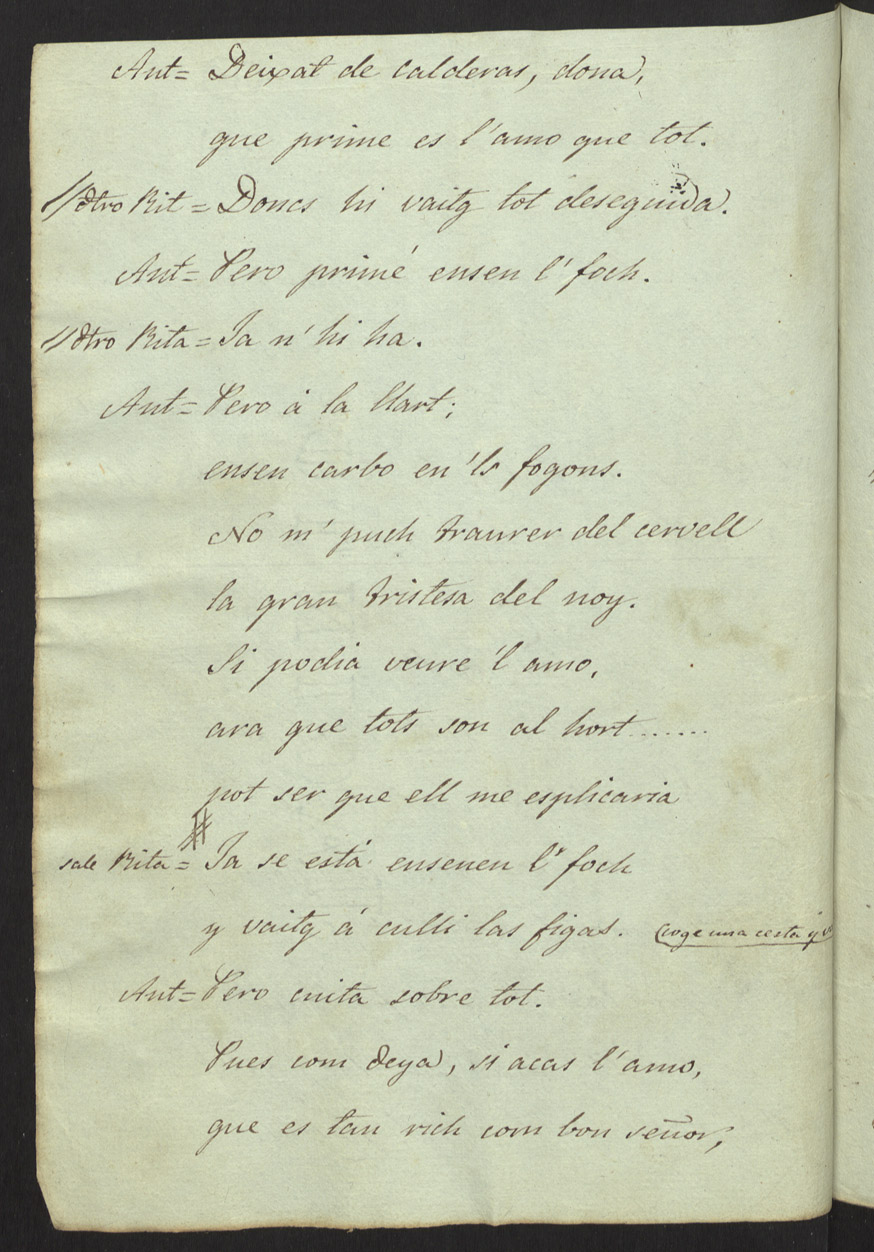 Ant= Deixat de calderas, dona,
que prime es l'amo que tot.
// dtro Rit = Doncs hi vaitg tot deseguida.
Ant= Pero primé ensen l'foch.
// dtro Rita = Ja n'hi ha.
Ant= Pero á la llart;
ensen carbo en'ls fogons.
No m'puch traurer del cervell
la gran tristesa del noy.
Si podia veure'l amo,
ara que tots son al hort.......
pot ser que ell me esplicaria
sale Rita = Ja se está ensenen l'foch
y vaitg á culli las figas. (coge una cesta y v
Ant= Pero cuita sobre tot.
Pues com deya, si acas l'amo,
que es tan rich com bon señor,